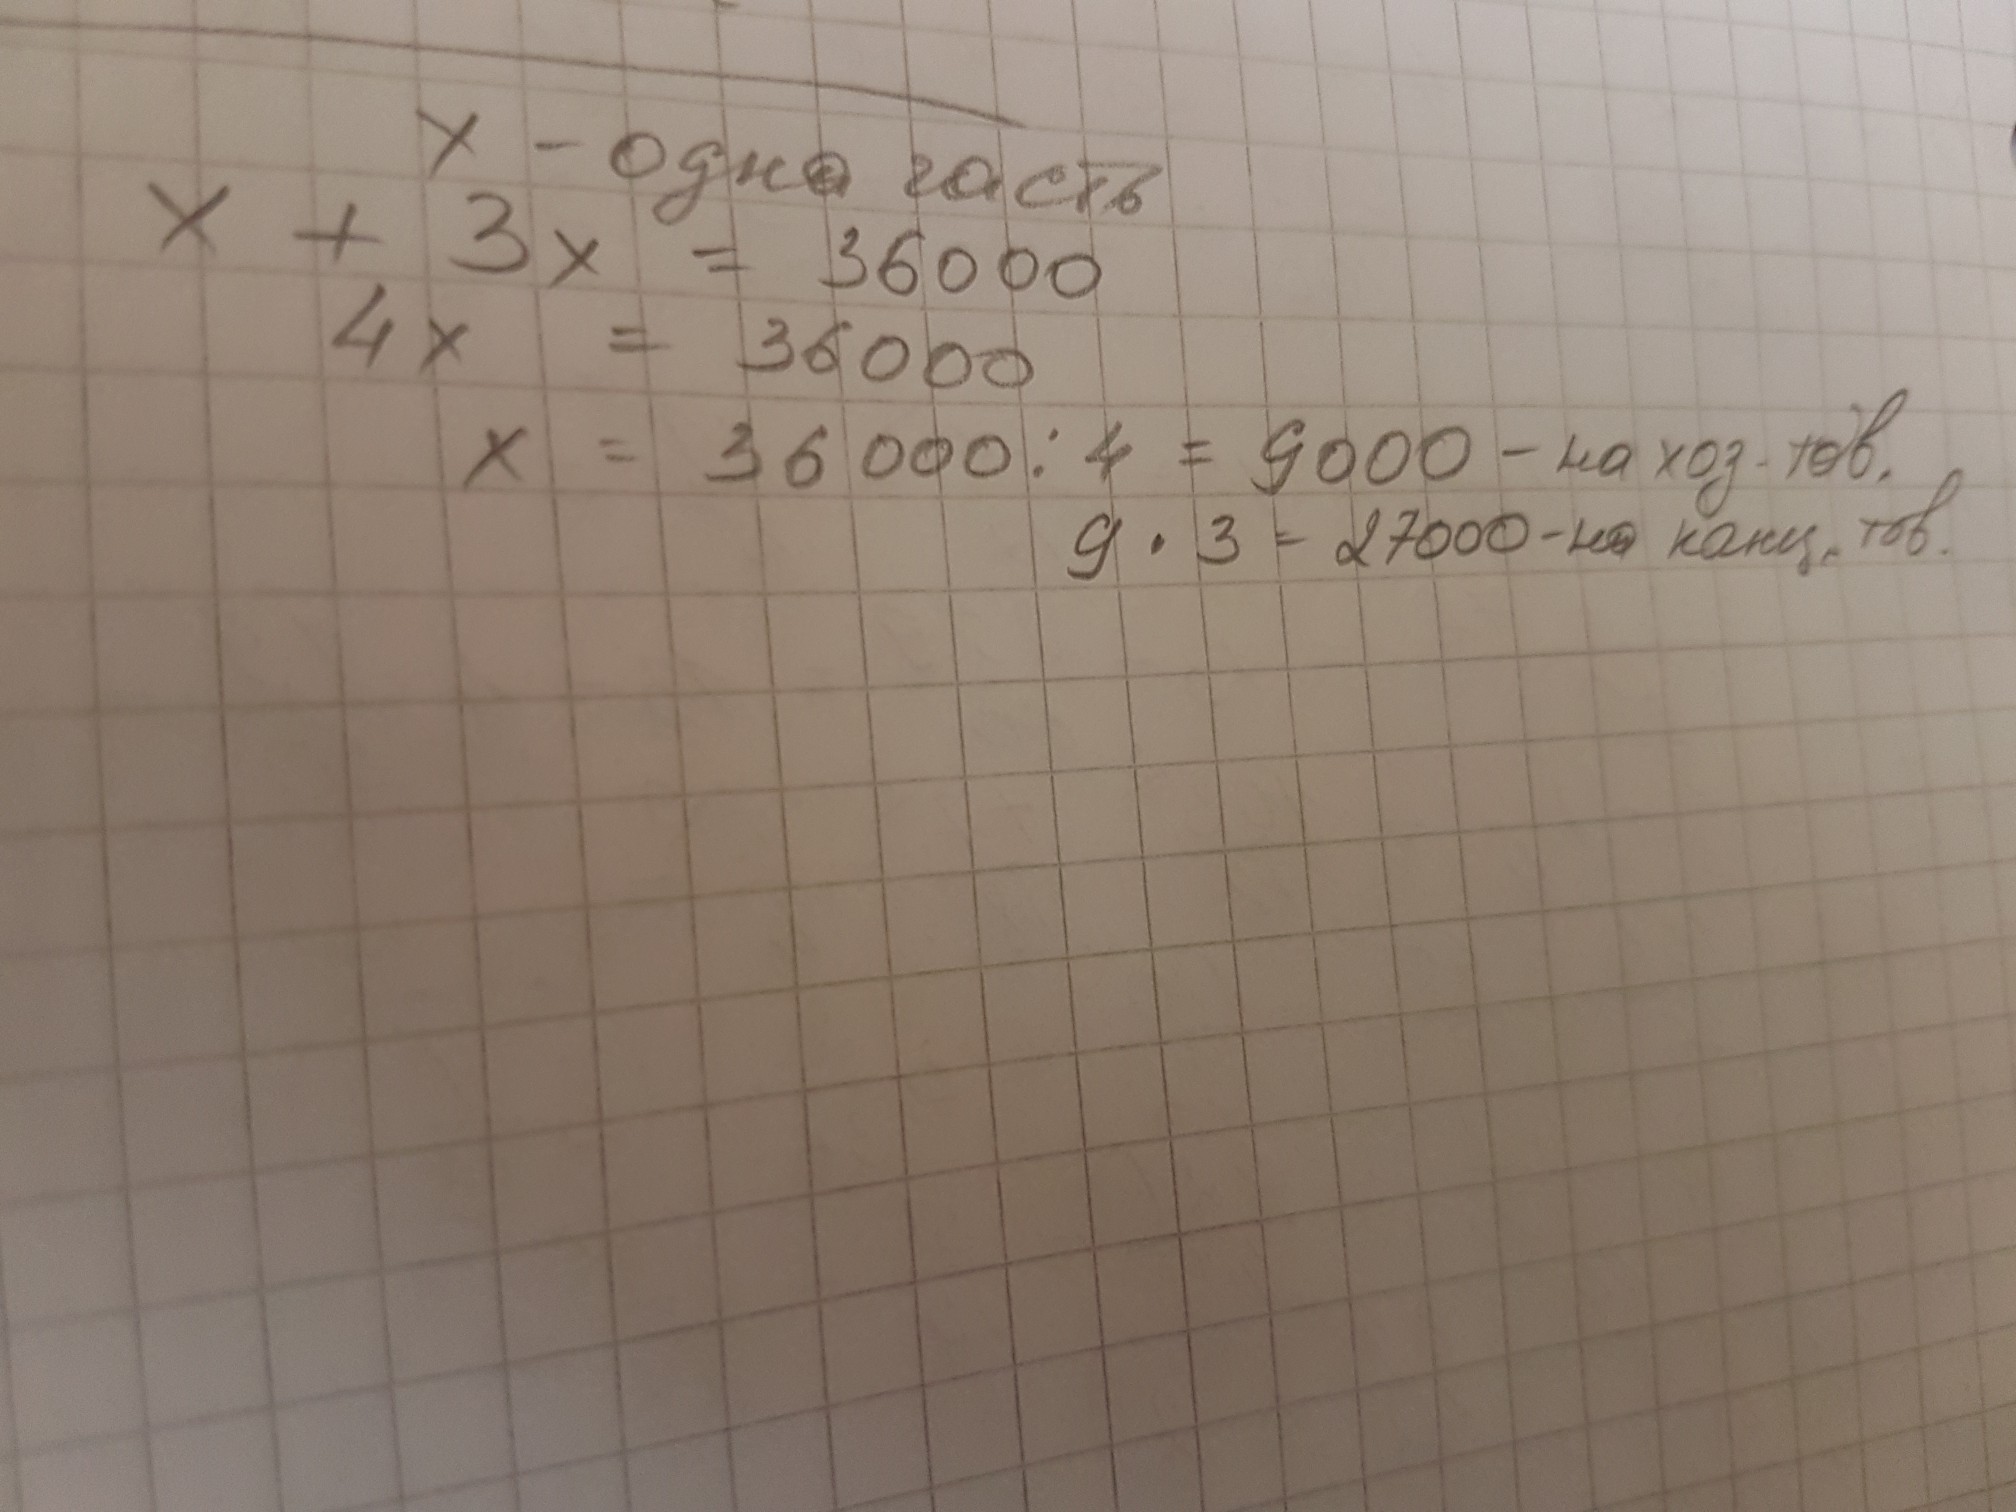 x - одна часть
x + 3x = 36000
4x = 36000
x = 36000 : 4 = 9000 - на хоз. тов.
9 · 3 = 27000 - на канц. тов.